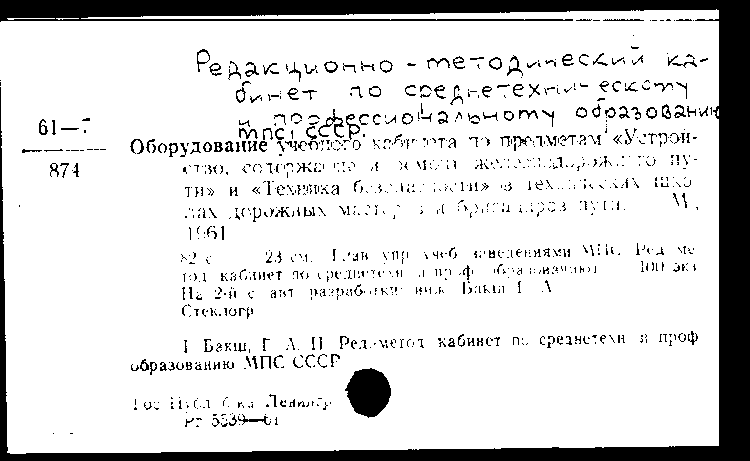 Редакционно-методический ка-
бинет по среднетехническому
и профессиональному образованию
МПС СССР.
61—7
874
Оборудование учебного кабинета по предметам «Устрой-
ство, содержание и ремонт железнодорожного пу-
ти» и «Техника безопасности» в технических шко-
лах дорожных мастеров и бригадиров пути. М.,
1961
82 с. 23 см. Глав упр учеб заведениями МПС. Ред ме-
тод кабинет по среднетехн и проф образованию 100 экз
На 2-й с авт разработки: инж. Бакш Г А
Стеклогр
I Бакш, Г. А. II Ред.-метод кабинет по среднетехн и проф
образованию МПС СССР
Гос Публ б-ка Ленингр
РГ 5539—61